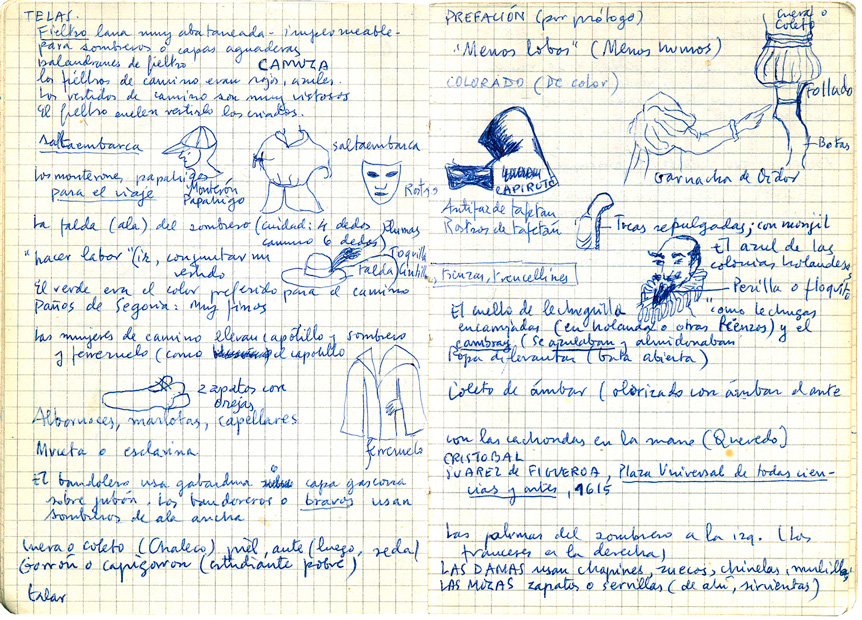 TELAS.
Fieltro lana muy abatanada - impermeable -
para sombreros o capas aguaderas
balandranes de fieltro
CAMUZA
los fieltros de camino eran rojos, azules.
Los vestidos de camino son muy vistosos
El fieltro suelen vestirlo los criados.
Saltaembarca
saltaembarca
Los monterones, papahigos
para el viaje
Monterón
Papahigo
Rostro
La falda (ala) del sombrero (ciudad: 4 dedos
camino 6 dedos)
plumas
Toquilla
falda
Cintillo
"hacer labor" (ir, conjuntar un
vestido
El verde era el color preferido para el camino
Paños de Segovia: Muy finos
Las mujeres de camino llevan capotillo y sombrero
y ferreruelo (como el capotillo
2 zapatos con
orejas
Albornoces, marlotas, capellares
Muceta o esclavina
ferreruelo
El bandolero usa gabardina capa gascona
sobre jubón. Los bandoleros o bravos usan
sombreros de ala ancha
Cuera o coleto (Chaleco) piel, ante (luego, seda)
Gorrón o capigorrón (estudiante pobre)
talar
PREFACIÓN (por prólogo)
"Menos lobos" (Menos humos)
COLORADO (De color)
cuera o
coleto
Follado
Botas
Garnacha de Oidor
CAPIROTE
Antifaz de tafetán
Rostros de tafetán
Tocas repulgadas; con monjil
El azul de las
colonias holandesas
trenzas, trencellines
Perilla o floquito
El cuello de lechuguilla "como lechugas
encarrujadas (en holanda o otras lienzos) y el
cambray (se azulaban y almidonaban
Ropa de levantar (bata abierta)
Coleto de ámbar (olorizado con ámbar el ante
con las cachondas en la mano (Quevedo)
CRISTOBAL
SUAREZ DE FIGUEROA, Plaza Universal de todas cien-
cias y artes, 1615
Las palumas del sombrero a la izq. (los
franceses a la derecha)
LAS DAMAS usan chapines, zuecos, chinelas, mulillas
LAS MOZAS zapatos o servillas (de ahí, sirvientas)